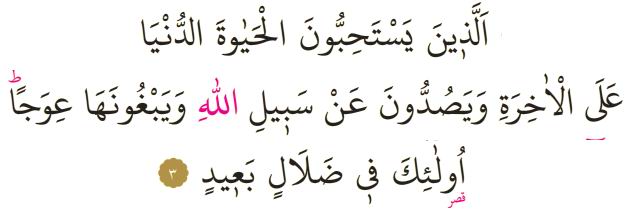 اَلَّذ۪ينَ يَسْتَحِبُّونَ الْحَيٰوةَ الدُّنْيَا
عَلَى الْاٰخِرَةِ وَيَصُدُّونَ عَنْ سَب۪يلِ اللّٰهِ وَيَبْغُونَهَا عِوَجًاۜ
اُو۬لٰٓئِكَ ف۪ي ضَلَالٍ بَع۪يدٍ ٣
قصر